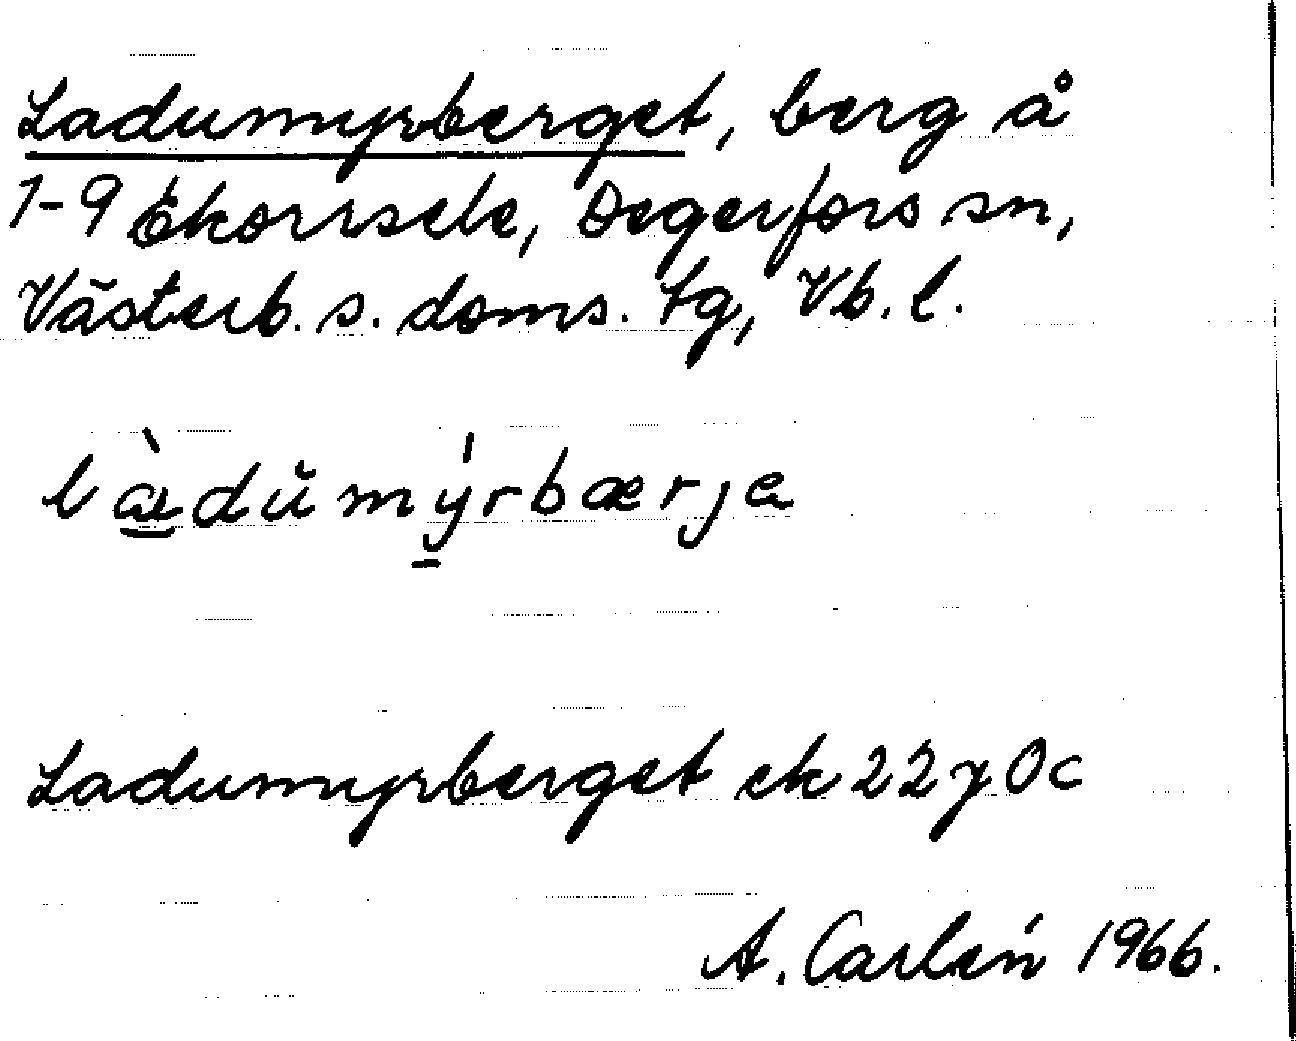 Ladumyrberget, berg å
1-9 Ekorrsele, Degerfors sn,
Västerb. s. doms. tg, Vb. l.
lædumýrbærjɐ
Ladumyrberget ek 22 y 0c
A. Carlén 1966.